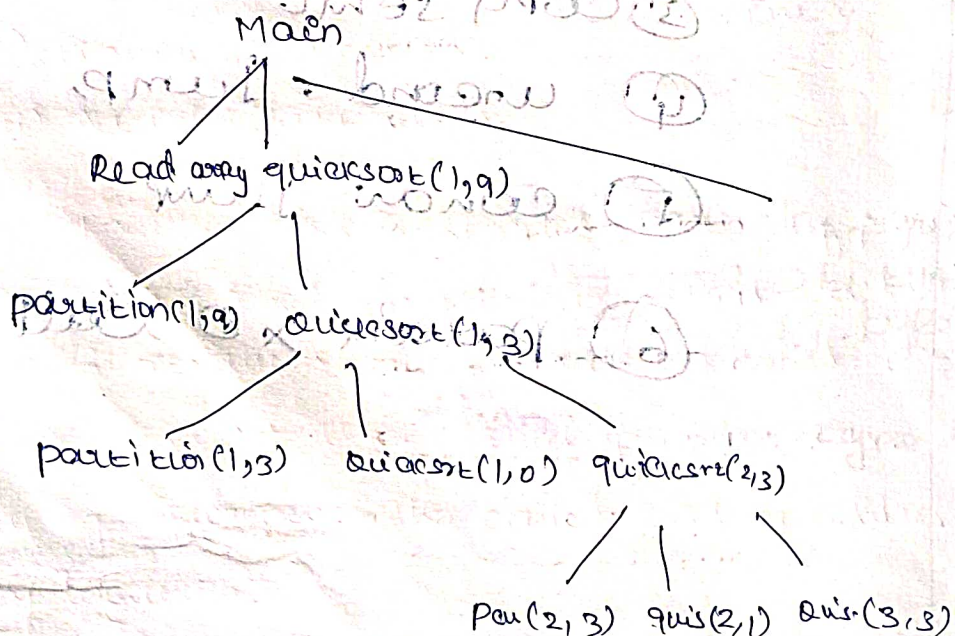 Main
Read array quicksort(1,9)
partition(1,9) quicksort(1,3)
partition(1,3) quicksort(1,0) quicksort(2,3)
par(2,3) quis(2,1) Quis.(3,3)